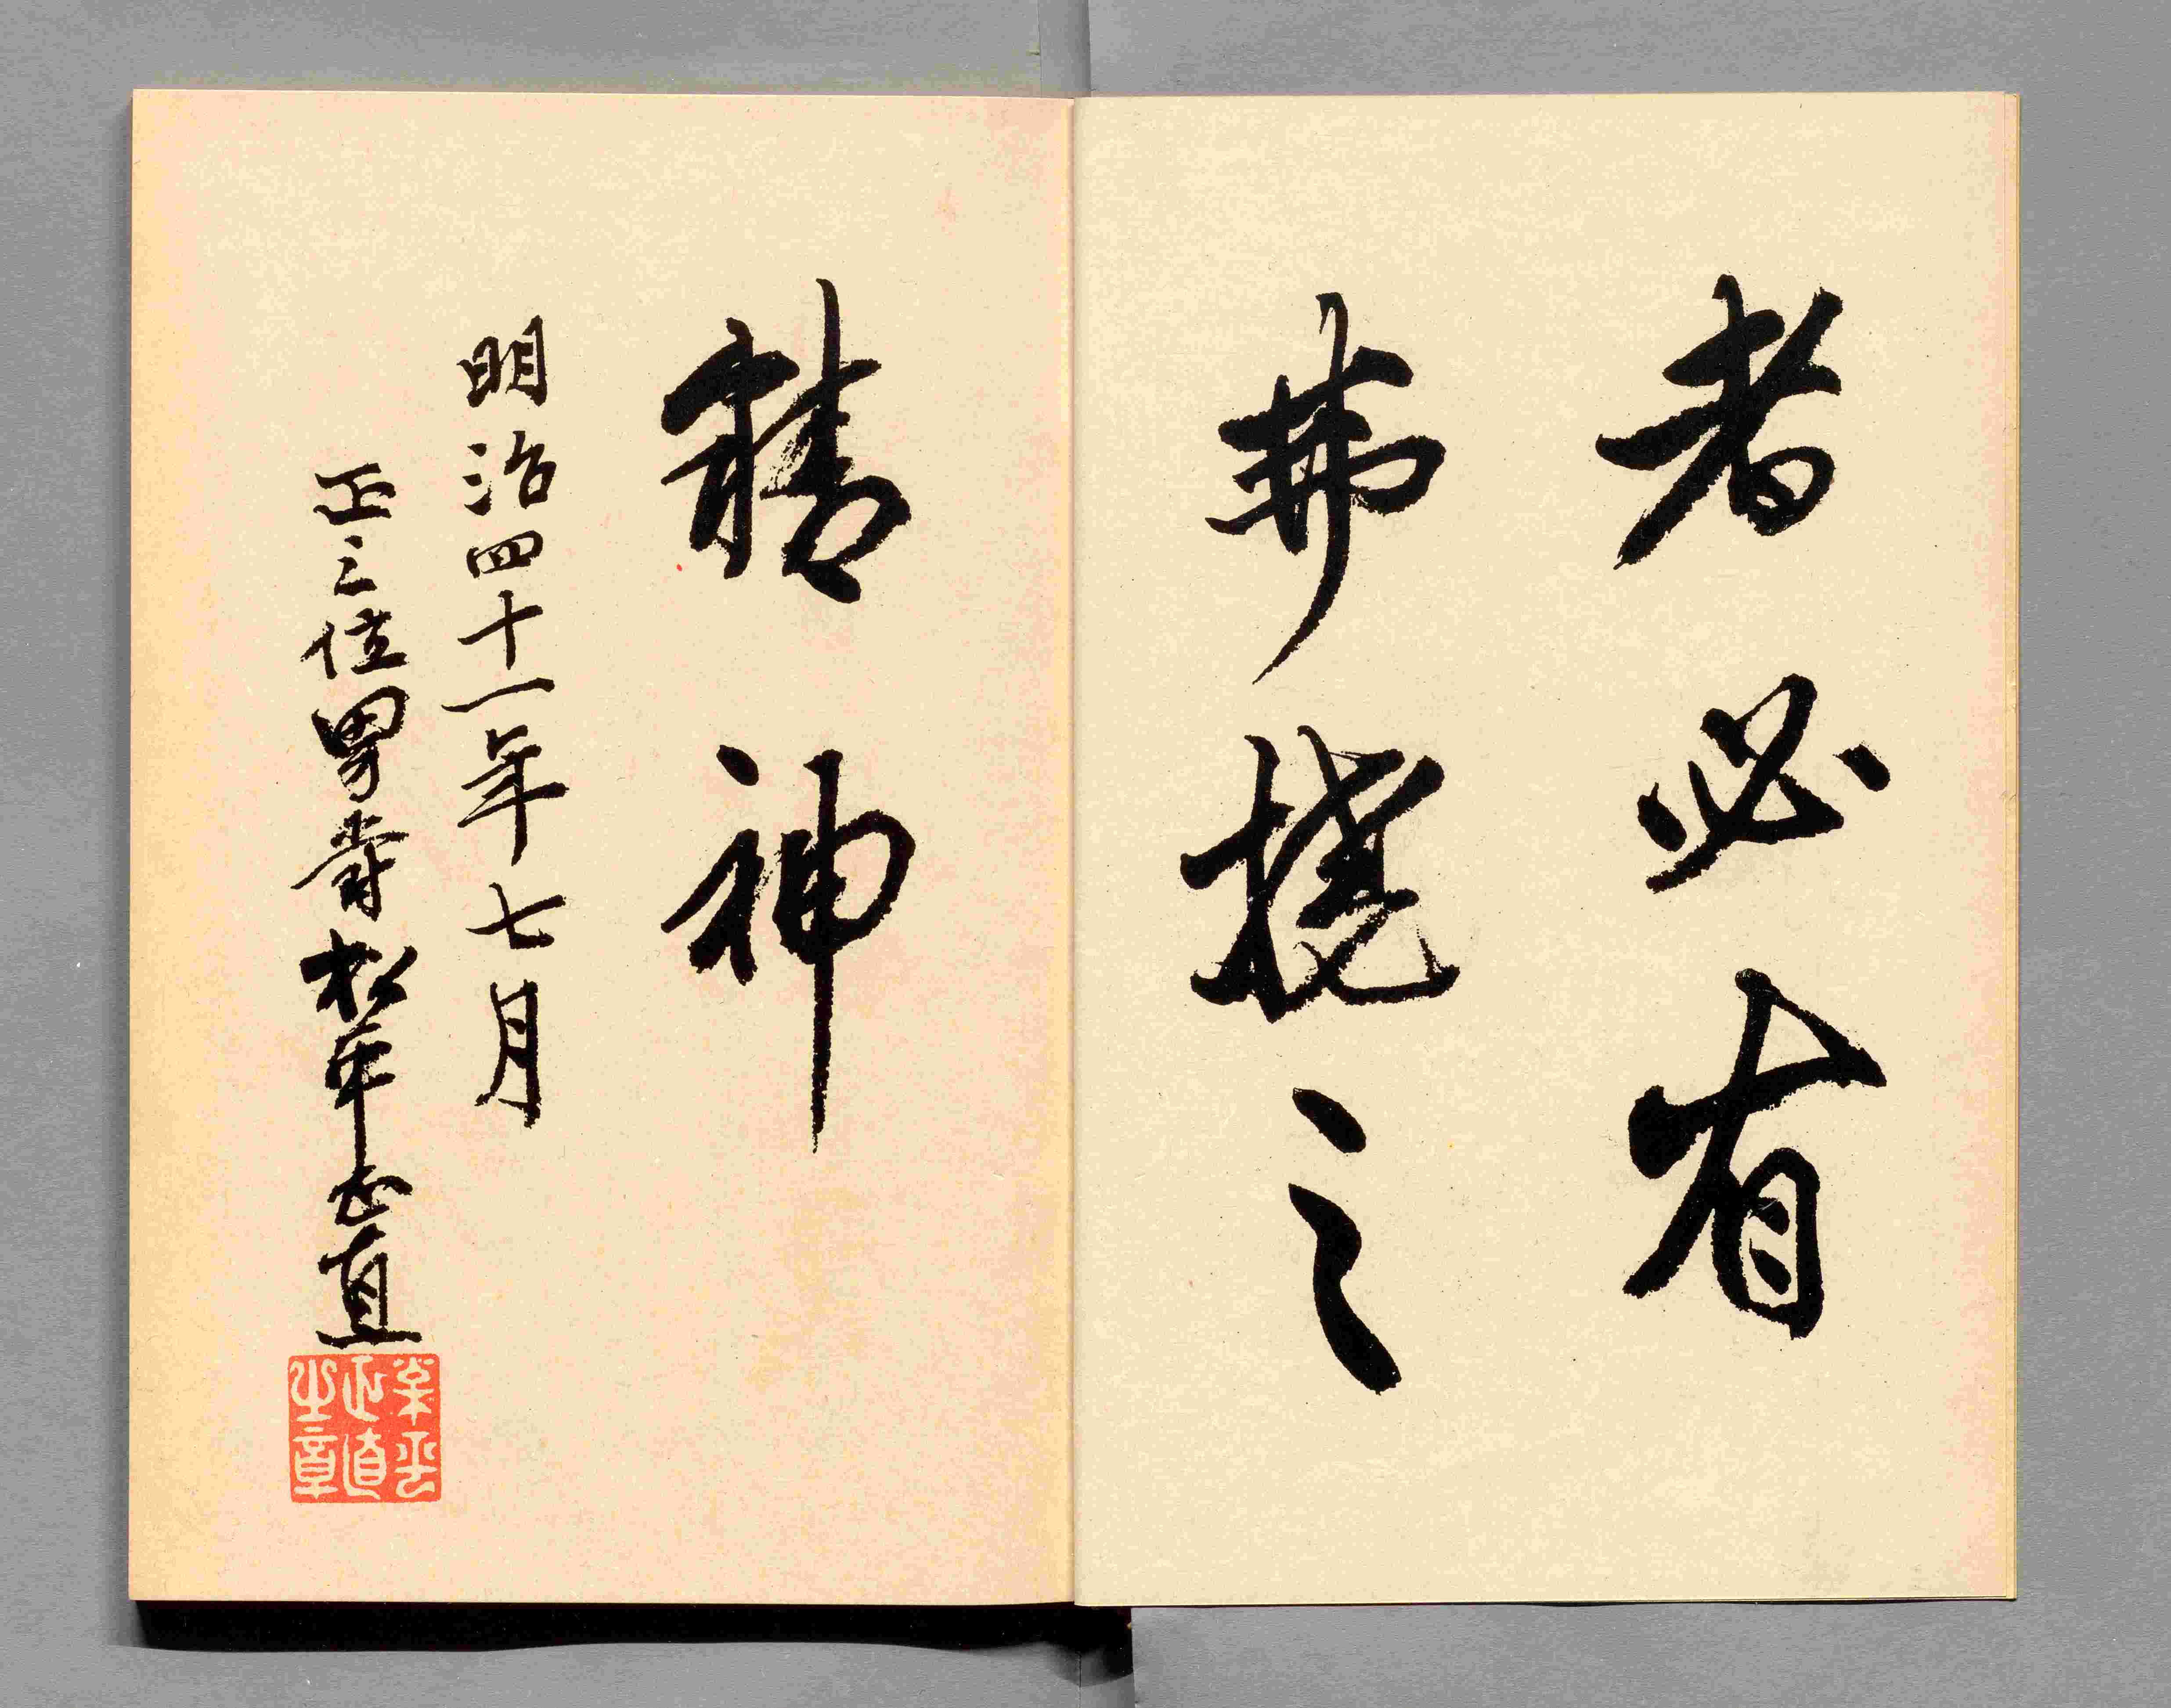 者必有
弗撓之
精神
明治四十一年七月
正三位男爵松平正直
松平
正直
之章